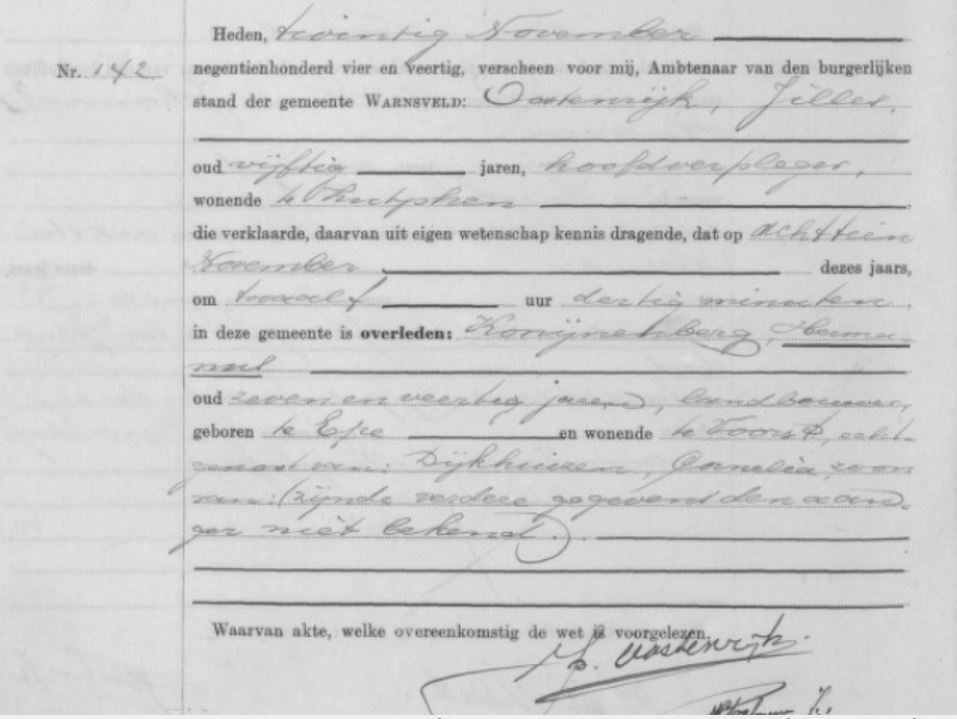 Heden, twintig November
Nr. 142.
negentienhonderd vier en veertig, verscheen voor mij, Ambtenaar van den burgerlijken
stand der gemeente WARNSVELD: Oostenrijk, Jilles,
oud vijftig jaren, hoofdverpleger,
wonende te Zutphen
die verklaarde, daarvan uit eigen wetenschap kennis dragende, dat op achttien
November dezes jaars,
om twaalf uur dertig minuten,
in deze gemeente is overleden: Konijnenberg, Hermanus
oud zeven en veertig jaren, landbouwer,
geboren te Epe en wonende te Voorst, echt-
genoot van: Dijkhuizen, Cornelia, zoon
van: (zijnde verdere gegevens den aange-
ger niet bekend).
Waarvan akte, welke overeenkomstig de wet is voorgelezen.
Oostenrijk.